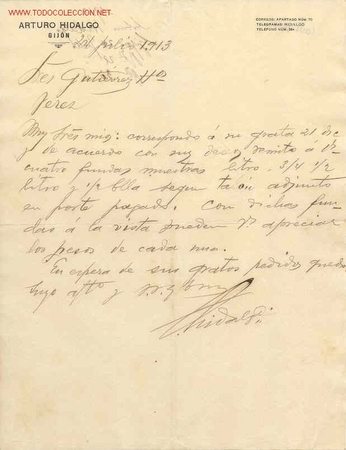 TODOCOLECCION.NET
ARTURO HIDALGO
GIJÓN
CORREOS: APARTADO NÚM. 70
TELEGRAMAS: HIDALGO
TELÉFONO NÚM.
24 julio 1913
Sres Gutiérrez Hos
Jerez
Muy Sres míos: correspondo á su grata 21 del
y de acuerdo con sus deseos remito á Vs
cuatro fundas muestras litro, 3/4 1/2
litro y 1/2 blla segun talón adjunto
en porte pagado. Con dichas fun-
das á la vista pueden Vs apreciar
los pesos de cada una.
En espera de sus gratos pedidos quedo
suyo affo y s.s.
A Hidalgo